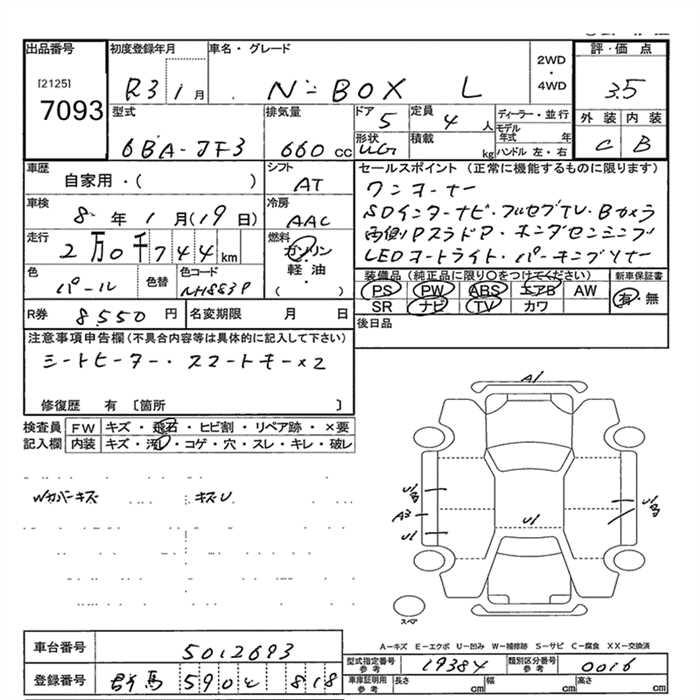 出品番号 初度登録年月 車名・グレード 2WD・4WD 評価点
[2125]
7093 R3 1月 N-BOX L 3.5
型式 排気量 ドア 5 定員 4人 ディーラー・並行 外装 内装
6BA-JF3 660cc 形状 積載 kg モデル年式 年 ハンドル 左・右 C B
車歴 自家用・( ) シフト AT セールスポイント (正常に機能するものに限ります)
ワンオーナー
車検 8年 1月(19日) 冷房 AAC SDインターナビ・フルセグTV・Bカメラ
両側Pスラドア・ホンダセンシング
走行 2万0千744km 燃料 ガソリン LEDオートライト・パーキングソナー
軽油
( )
色 パール 色替 色コード NH883P 装備品(純正品に限り○をつけてください) 新車保証書
PS PW ABS エアB AW 有・無
SR ナビ TV カワ
R券 8550円 名変期限 月 日 後日品
注意事項申告欄(不具合内容等は具体的に記入して下さい)
シートヒーター・スマートキー×2
修復歴 有 〔箇所 〕
検査員 FW キズ・飛石・ヒビ割・リペア跡・×要
記入欄 内装 キズ・汚レ・コゲ・穴・スレ・キレ・破レ
Wカバーキズ キズU
A1
U1
B
A3
U1
U1
U1
B
スペア
A-キズ E-エクボ U-凹み W-補修跡 S-サビ C-腐食 XX-交換済
車台番号 5012693
型式指定番号 参考 19384 類別区分番号 参考 0016
登録番号 群馬 590 818
車庫証明用 参考 長さ cm 幅 cm 高さ cm